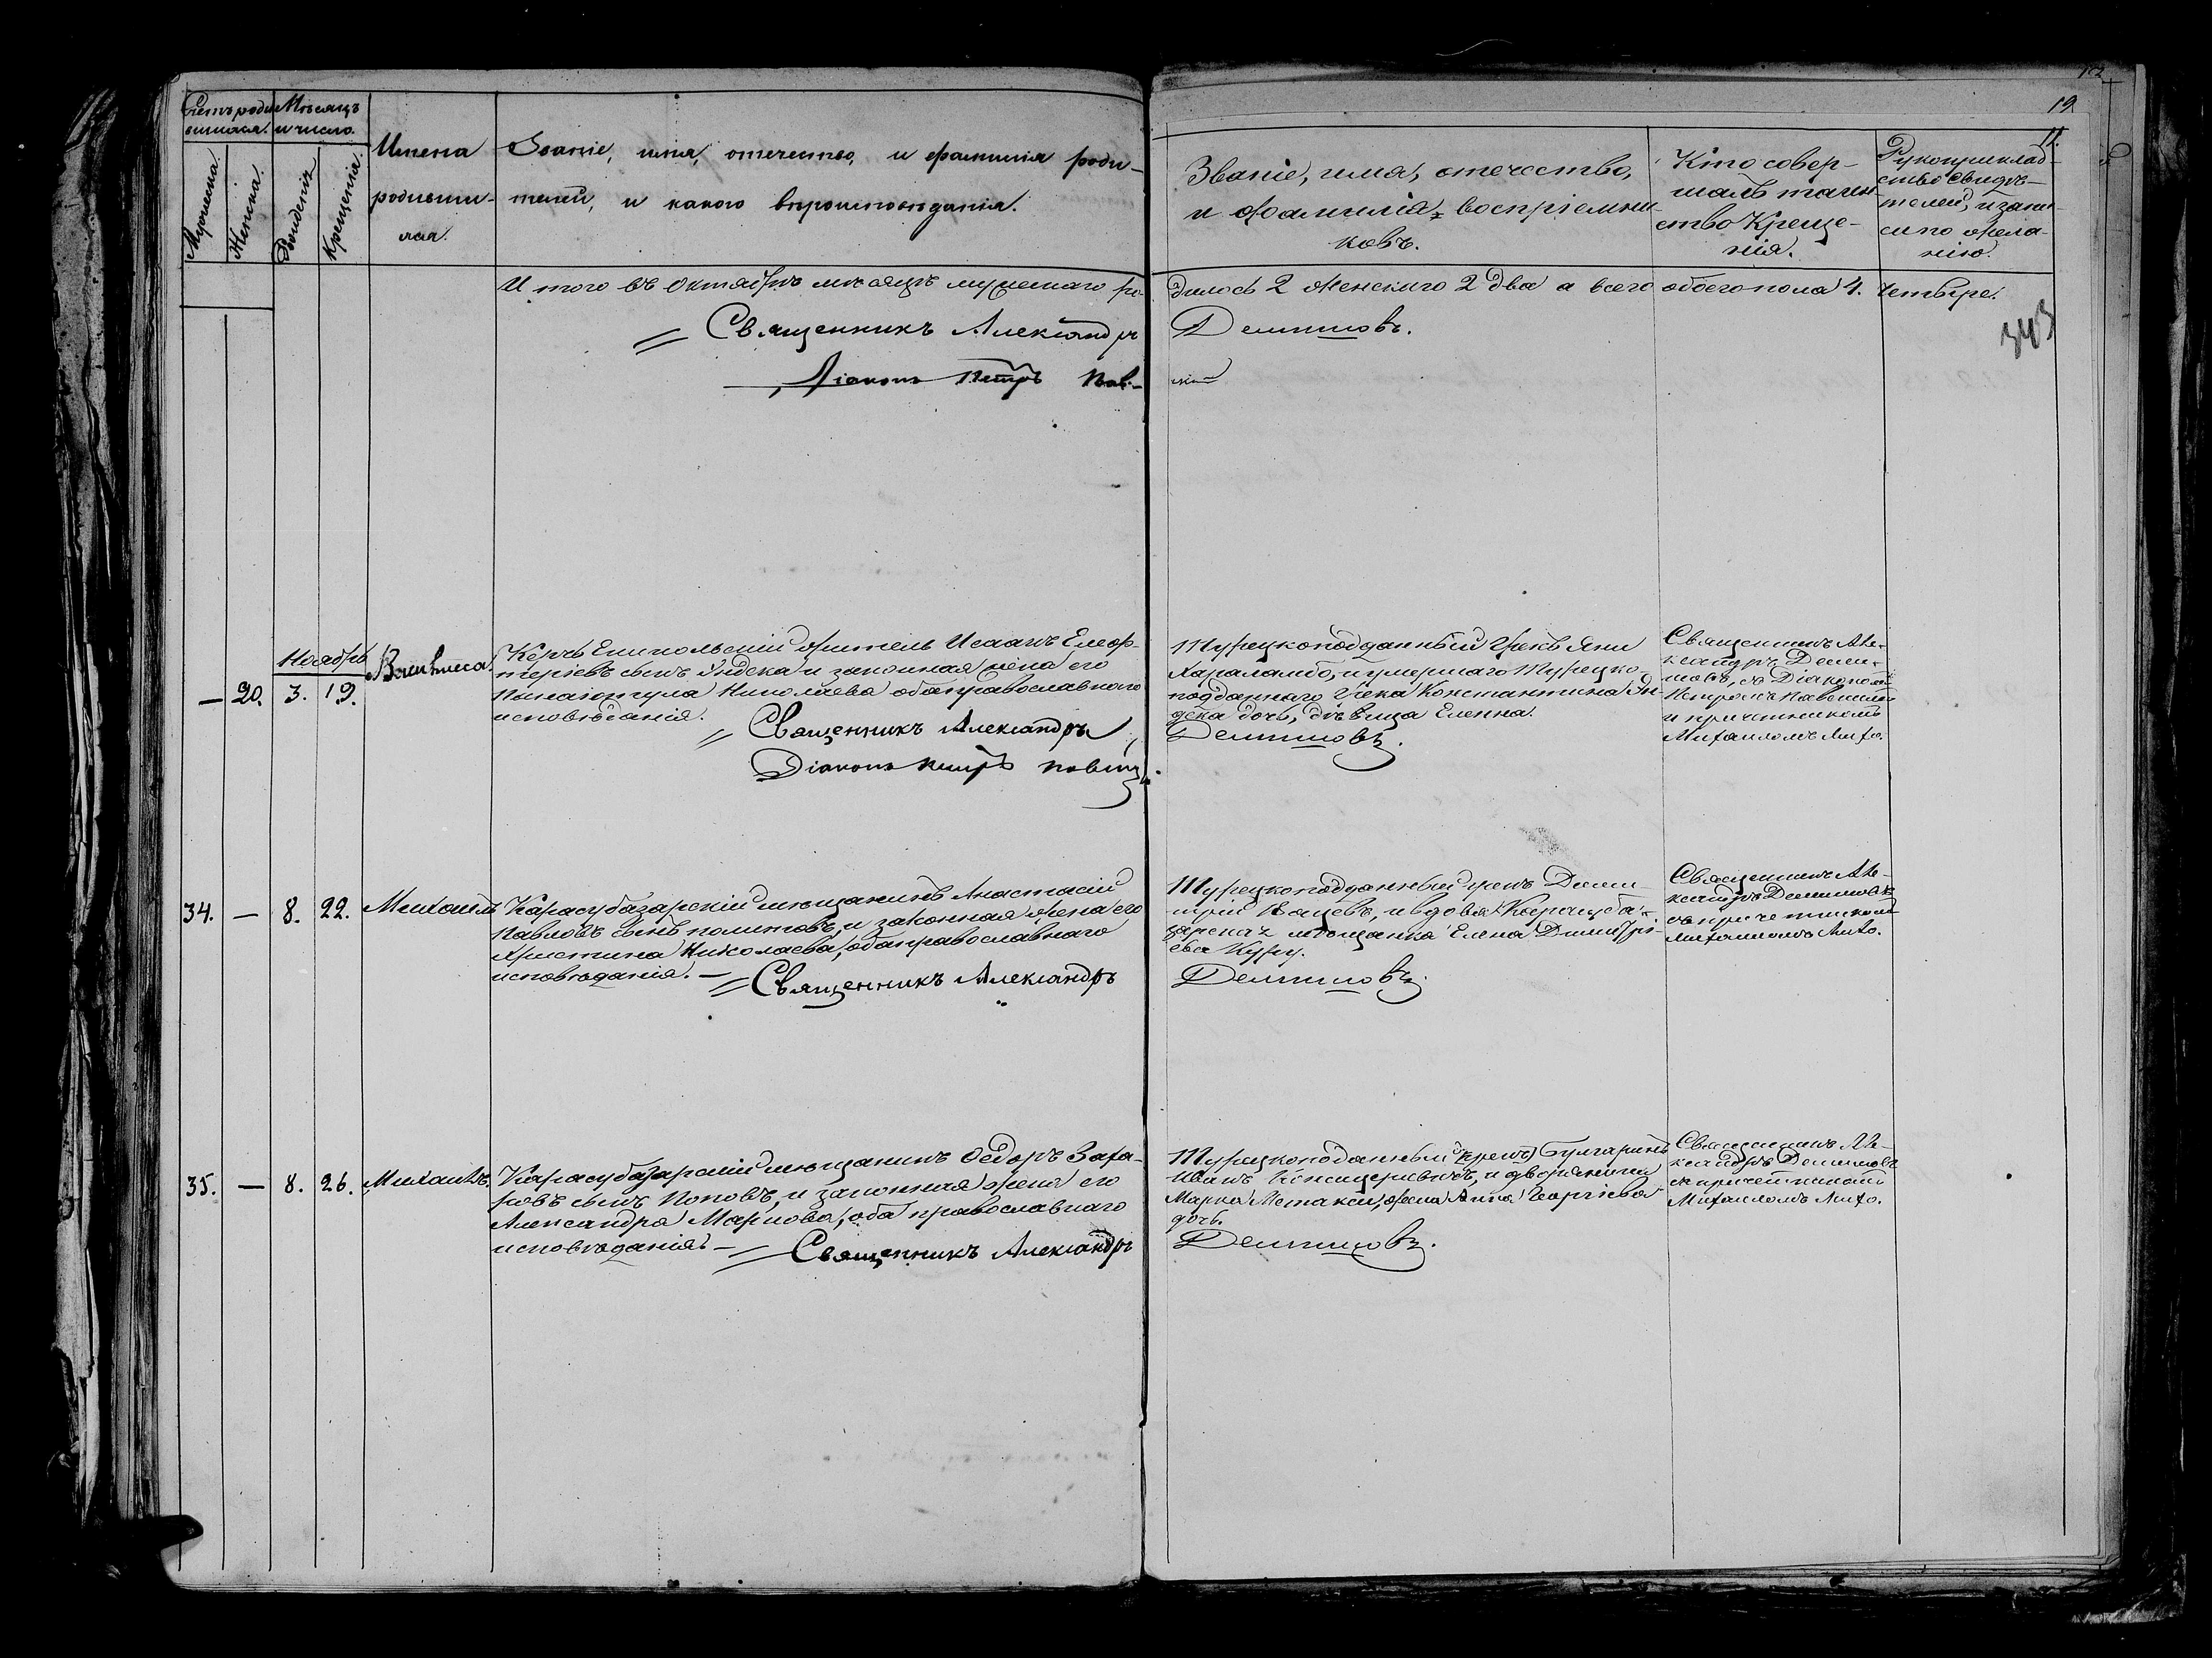 19
11.
Счетъ роди Мѣсяцъ
вшихся. и число.
Мужеска.
Женска.
Рожденія
Крещенія.
Имена
родивши-
хся.
Званіе, имя, отечество, и фамилія роди-
телей, и какого вѣроисповѣданія.
Званіе, имя, отечество,
и фамилія воспріемни-
ковъ.
Кто совер-
шалъ таин
ство Креще-
нія.
Рукоприклад-
ство свидѣ-
телей, и запи
си по жела-
нію.
И того въ Октябрѣ мѣсяцѣ мужескаго ро-
дилось 2 женскаго 2 два а всего обоего пола 4. Четыре.
343
Священникъ Александръ
Демишовъ.
Діаконъ Петръ Пав-
Ноябрь
— 20. 3. 19.
Керчь Еникольскій житель Исаакъ Елеф-
теріевъ сынъ и законная жена его
Николаева оба православнаго
исповѣданія.
Священникъ Александръ
Діаконъ Петръ
Турецкоподданный Грекъ Яни
Харламбо, и умершаго Турецко-
подданнаго Грека Константина Ян-
дека дочь, дѣвица Елена.
Демишовъ.
Священникъ Але-
ксандръ Деми-
шовъ, съ Діакономъ
Петромъ
и причетникомъ
Михаиломъ
34. — 8. 22. Михаилъ
Карасубазарскій мѣщанинъ Анастасій
Павловъ сынъ Политовъ, и законная жена его
Христина Николаева, оба православнаго
исповѣданія. —
Священникъ Александръ
Турецкоподданный грекъ Дими-
трій, и вдова Карасуба-
зарская мѣщанка Елена Димитрі-
ева
Демишовъ.
Священникъ Але-
ксандръ Демишовъ
съ причетникомъ
Михаиломъ
35. — 8. 26. Михаилъ.
Карасубазарскій мѣщанинъ Ѳедоръ Заха-
ровъ сынъ Поповъ, и законная жена его
Александра Маркова, оба православнаго
исповѣданія —
Священникъ Александръ
Турецкоподданный Булгаринъ
Иванъ, и дворянина
Марка Метакси, жена Анна Георгіева
дочь.
Демишовъ.
Священникъ Але-
ксандръ Демишовъ
съ причетникомъ
Михаиломъ